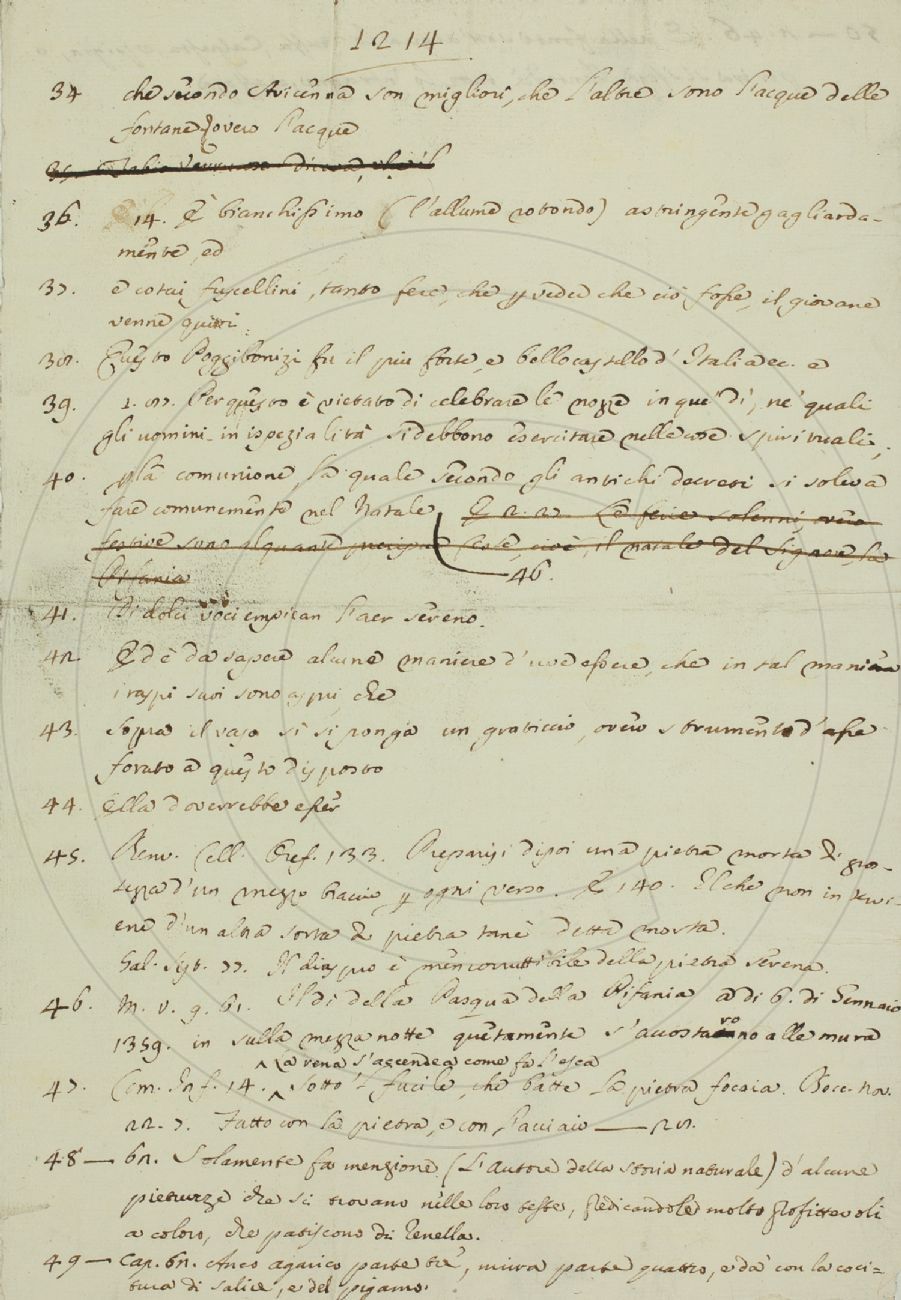 1214
34 che secondo Avicenna son migliori, che l'altre sono l'acque delle
fontane, overo l'acque
35.
36. 14. E bianchissimo (l'allume rotondo) astringente gagliarda-
mente, ed
37. e cotai fuscellini, tanto fece, che p vedere che ciò fosse, il giovane
venne quivi
38. Questo Poggibonizi fu il più forte, e bello castello d'Italia ec. e
39. 1. Per questo è vietato di celebrare le nozze in que' dì, ne' quali
gli uomini in ispezialità si debbono esercitare nelle cose spirituali,
40. p la comunione, la quale secondo gli antichi decreti si soleva
fare comunemente nel Natale E 2. 2. Le ferie solenni, overo
festive sono alquante cioè, il natale del Signore, la
Pifania 46.
41. Di dolci voci empiean l'aer sereno.
42 Ed è da sapere alcune maniere d'uve essere, che in tal maniera
i raspi suoi sono aspri, che
43. Sopra il vaso sì si ponga un graticcio, overo strumento d'asse
forato a questo disposto
44. Ella doverrebbe esser
45. Benv. Cell. Oref. 133. Preparisi dipoi una pietra morta di gros-
sezza d'un mezzo braccio p ogni verso. E 140. Il che non in tervi-
ene d'un altra sorta di pietra tane detta morta.
Sal. 77. Il diaspro è men corruttibile della pietra serena.
46. M. V. 9. 61. Il dì della Pasqua della Pifania a dì 6. di Gennaio
1359. in sulla mezza notte quetamente s'accostarono alle mura
La rena s'accendea com'e fa l'esca
47. Com. Inf. 14. Sotto 'l fucile, che batte la pietra focaia. Bocc. Nov.
22. 7. Fatto con la pietra, e con l'acciaio — 28.
48 — 62. Solamente fa menzione (L'autore della storia naturale) d'alcune
pietruzze che si trovano nelle loro teste, predicandole molto profittevoli
a coloro, che patiscono di renella.
49 — Cap. 62. Anco agarico parte tre, mirra parte quattro, e dà con la coci-
tura di salice, e del pigamo.